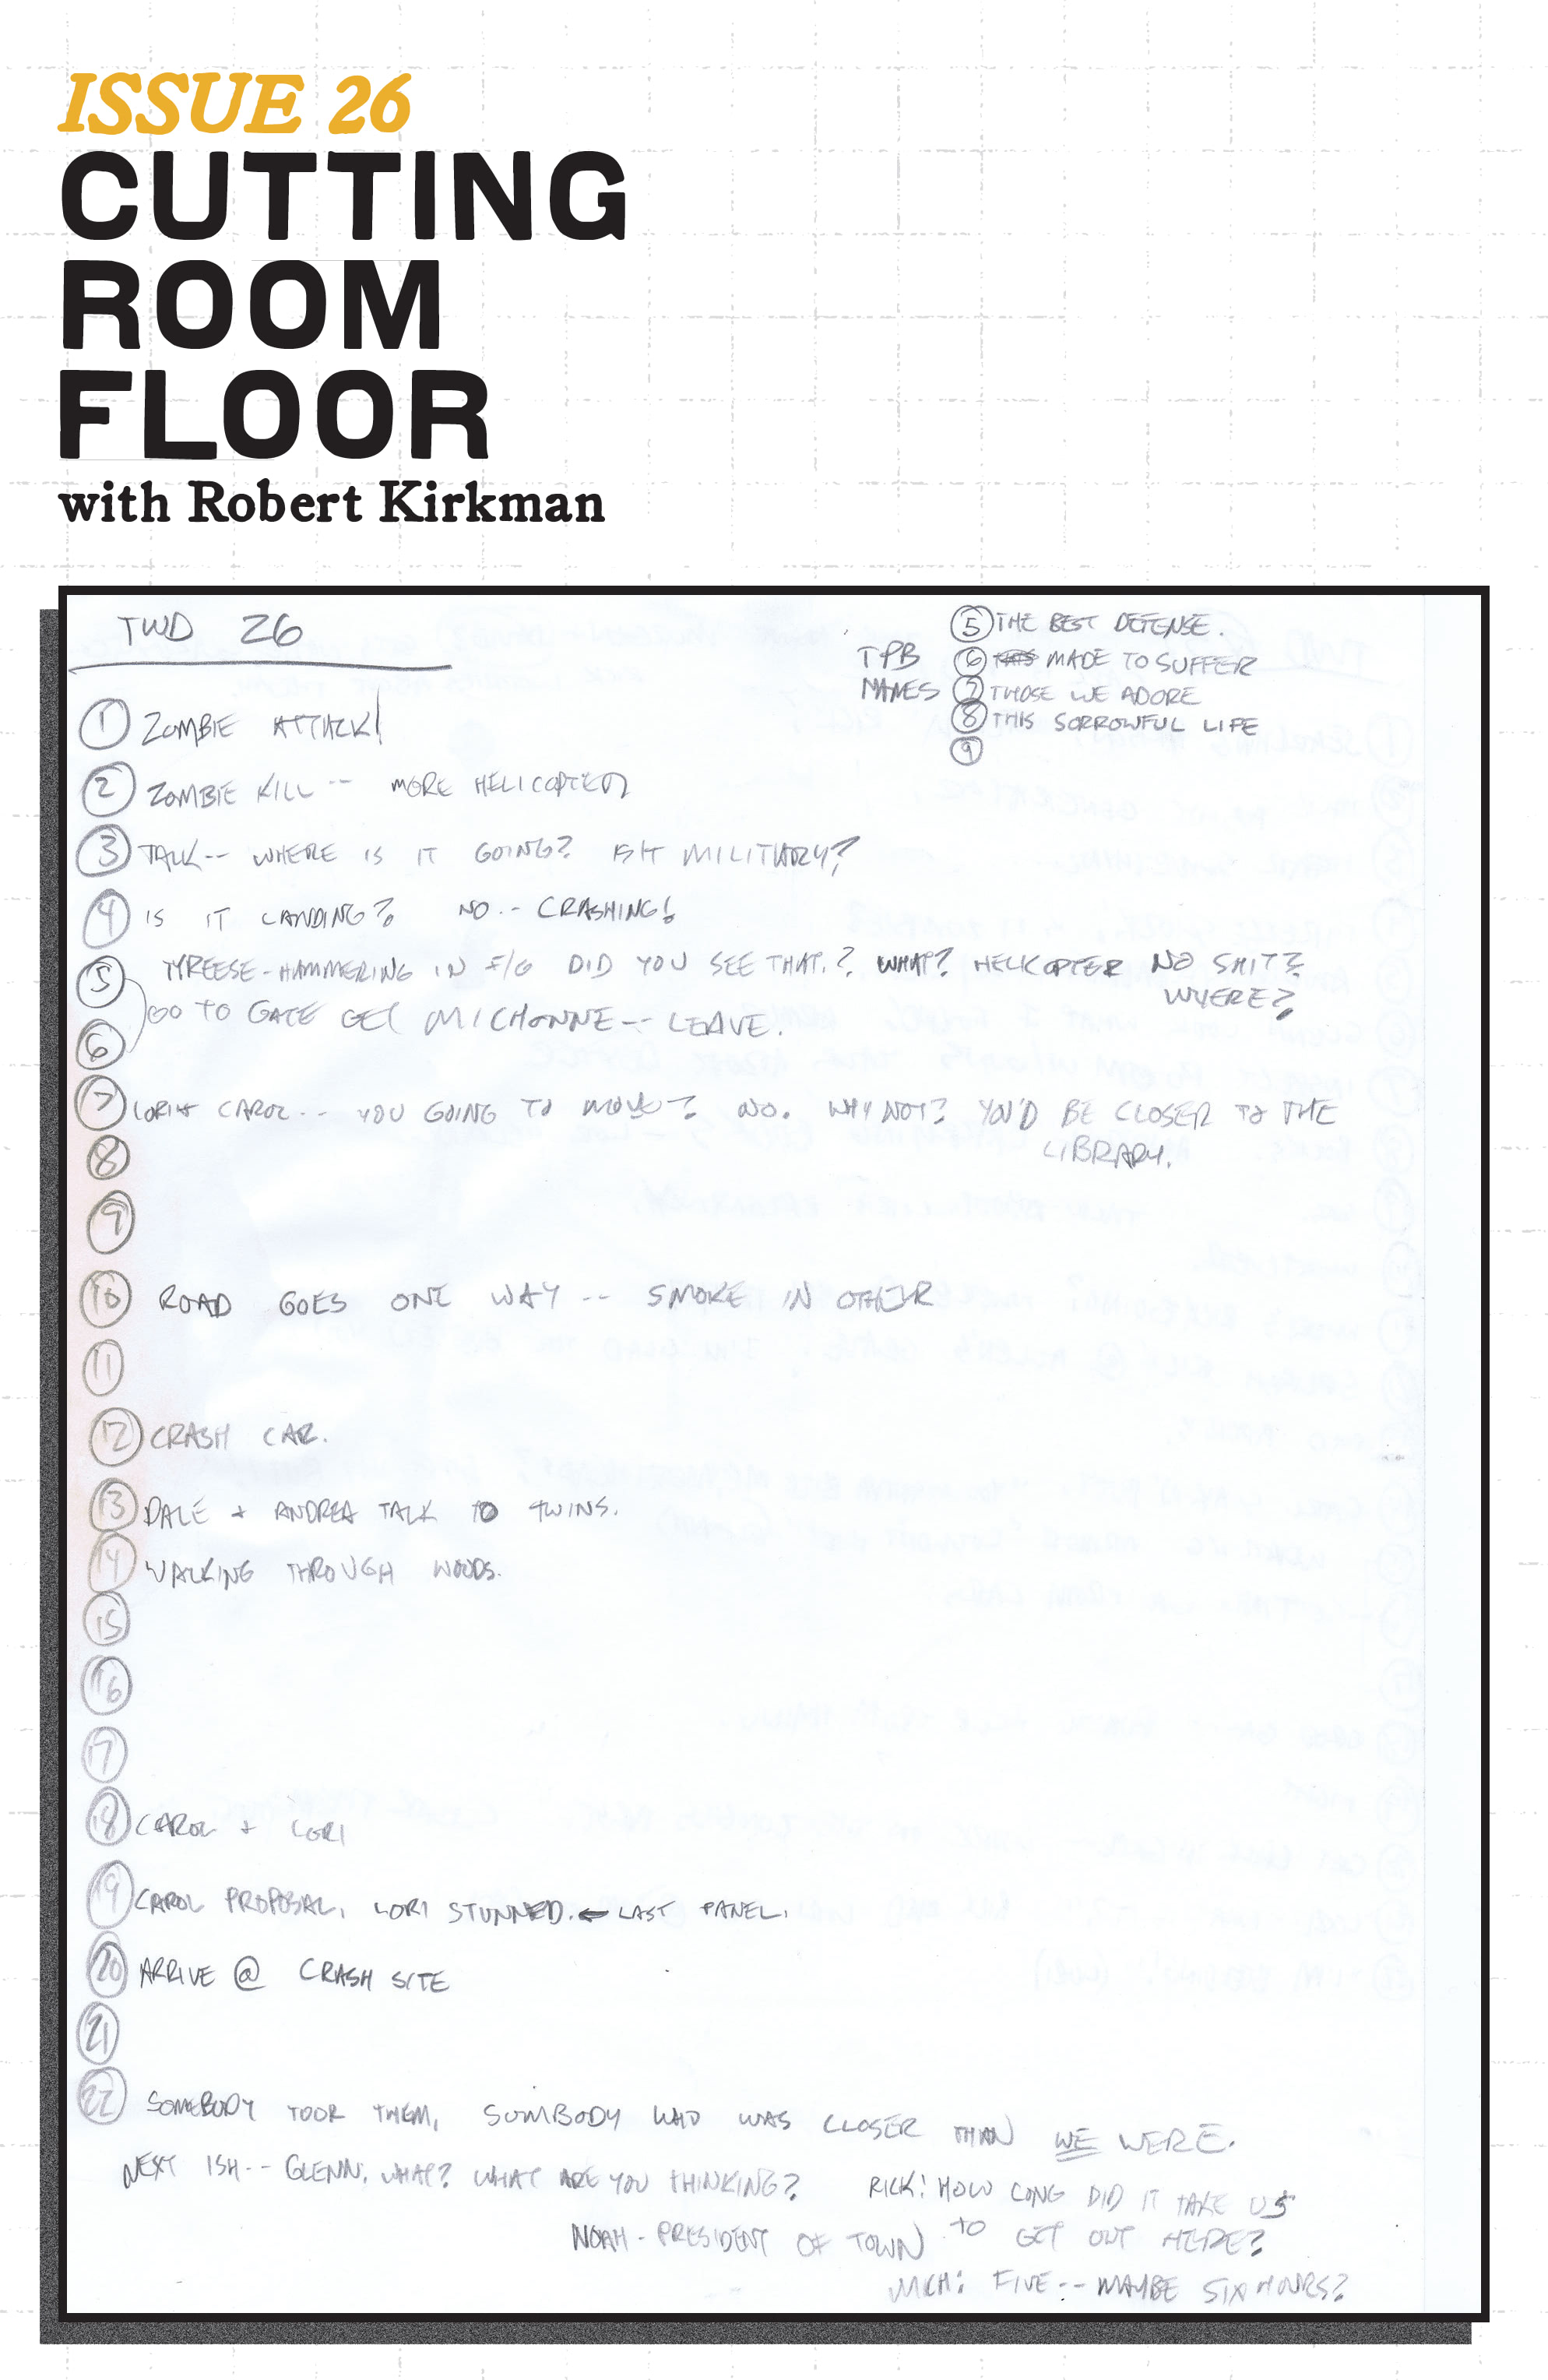 ISSUE 26
CUTTING
ROOM
FLOOR
with Robert Kirkman
TWD 26
TPB
NAMES
⑤ THE BEST DEFENSE.
⑥ MADE TO SUFFER
⑦ THOSE WE ADORE
⑧ THIS SORROWFUL LIFE
⑨
① ZOMBIE ATTACK!
② ZOMBIE KILL -- MORE HELICOPTER
③ TALK -- WHERE IS IT GOING? IS IT MILITARY?
④ IS IT LANDING? NO -- CRASHING!
⑤ TYREESE - HAMMERING IN F/G DID YOU SEE THAT? WHAT? HELICOPTER NO SHIT?
WHERE?
GO TO GATE GET MICHONNE -- LEAVE.
⑥
⑦ LORI + CAROL -- YOU GOING TO MOVE? NO. WHY NOT? YOU'D BE CLOSER TO THE
LIBRARY.
⑧
⑨
⑩ ROAD GOES ONE WAY -- SMOKE IN OTHER
⑪
⑫ CRASH CAR.
⑬ DALE + ANDREA TALK TO TWINS.
⑭ WALKING THROUGH WOODS.
⑮
⑯
⑰
⑱ CAROL + LORI
⑲ CAROL PROPOSAL, LORI STUNNED. ← LAST PANEL.
⑳ ARRIVE @ CRASH SITE
㉑
㉒ SOMEBODY TOOK THEM, SOMBODY WHO WAS CLOSER THAN WE WERE.
NEXT ISH -- GLENN, WHAT? WHAT ARE YOU THINKING? RICK: HOW LONG DID IT TAKE US
TO GET OUT HERE?
NOAH - PRESIDENT OF TOWN
MICH: FIVE -- MAYBE SIX HOURS?